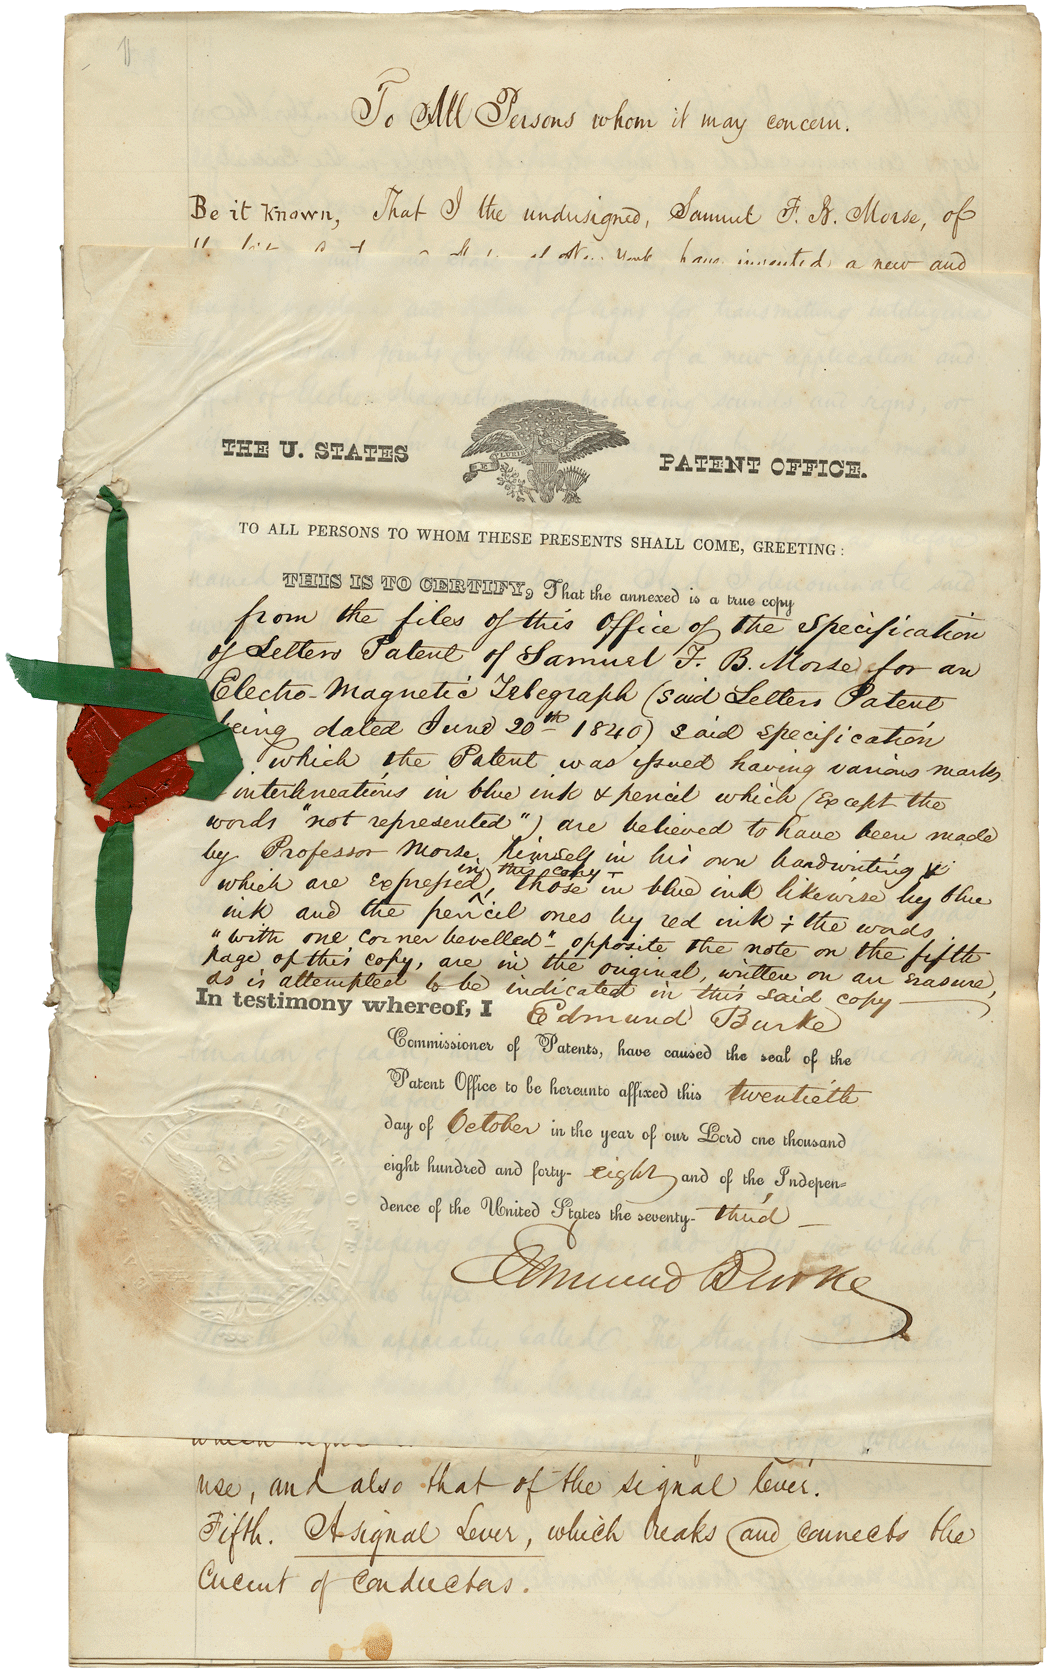 To All Persons whom it may concern.
Be it known, That I the undersigned, Samuel F. B. Morse, of
have invented a new and
THE U. STATES PATENT OFFICE.
E PLURIB
TO ALL PERSONS TO WHOM THESE PRESENTS SHALL COME, GREETING:
THIS IS TO CERTIFY, That the annexed is a true copy
from the files of this Office of the Specification
of Letters Patent of Samuel F. B. Morse for an
Electro-Magnetic Telegraph (said Letters Patent
being dated June 20th 1840) said specification
which the Patent was issued having various marks
interlineations in blue ink & pencil which (except the
words "not represented") are believed to have been made
by Professor Morse himself in his own handwriting &
which are expressed, in this copy those in blue ink likewise by blue
ink and the pencil ones by red ink & the words
"with one corner bevelled" opposite the note on the fifth
page of this copy, are in the original, written on an erasure,
as is attempted to be indicated in this said copy
In testimony whereof, I Edmund Burke
Commissioner of Patents, have caused the seal of the
Patent Office to be hereunto affixed this twentieth
day of October in the year of our Lord one thousand
eight hundred and forty-eight and of the Indepen-
dence of the United States the seventy-third
Edmund Burke
use, and also that of the signal lever.
Fifth. A signal Lever, which breaks and connects the
circuit of conductors.